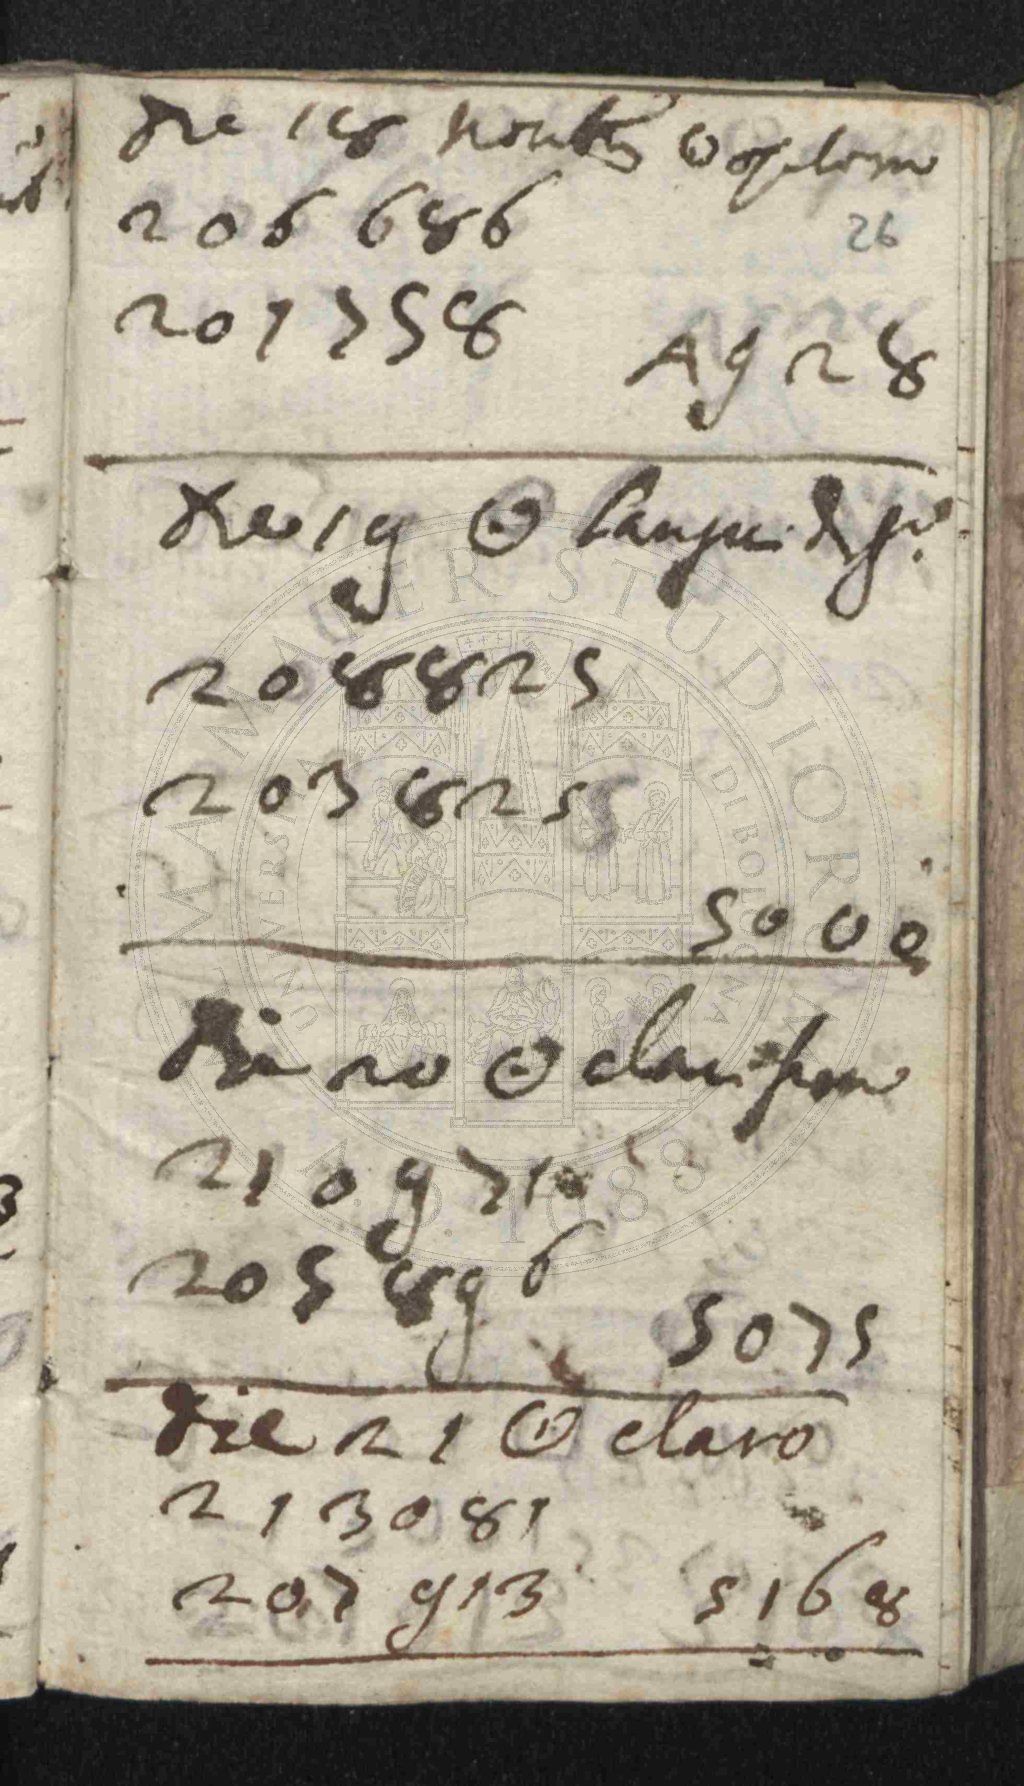 Die 18 ☉
206686
26
201758
4928
Die 19 ☉
208825
203825
5000
Die 20 ☉
210971
205896
5075
Die 21 ☉ claro
213081
207913
5168
ALMA MATER STUDIORUM
UNIVERSITÀ DI BOLOGNA
A.D. 1088